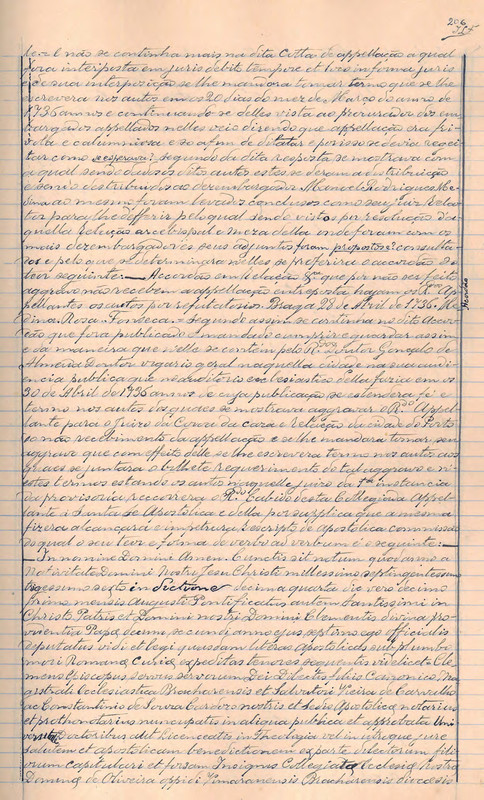 206
de = E não se continha mais na dita Cotta de appellação a qual
fora interposta em juris debito tempore et loco in forma juris
e de sua interposição se lhe mandora tomar termo que se lhe
escrevera nos autos em os 20 dias do mez de Março do anno de
1736 annos e continuando se delles vista ao procurador dos em
bargados appellados nelles veio dizendo que appellação era fri
vola e calumniosa e so afim de dilatar e por isso se devia regei
tar como se esperava? segundo da dita resposta se mostrava com
a qual sendo dados os ditos autos estes se deram a distribuição
e sendo destribuidos ao dezembargador Manoel Rodrigues Me
dina ao mesmo foram levados conclusos como seu juiz Rela
tor para lhe defferir pelo qual sendo vistos e por resolução da
quella Relação archiepiscopal e Meza della onde foram com os
mais dezembargadores seus adjuntos foram propostos? consulta
dos e pelo que se determinara nelles se proferira o acordão do
teor seguinte: — Acordão em Relação &ª que por não ser feito
aggravo não recebem a appellação interposta hajam os R. Ap
pellantes os autos por refutatorios. Braga 28 de Abril de 1736. Me
dina. Rosa. Fonseca. = Segundo assim se continha no dito Acor
dão que fora publicado e mandado cumprir e guardar assim
e da maneira que nelle se contém pelo R.do Doutor Gonçalo de
Almeida Doutor vigario geral naquella cidade na sua audi
encia publica que no auditorio ecclesiastico della fazia em os
30 de Abril de 1736 annos de cuja publicação se estendera fé e
termo nos autos dos quaes se mostrava aggravar o R.do Appel
lante para o Juizo da Coroa da caza e Relação da cidade do Porto
do não recebimento da appellação e se lhe mandara tomar seu
aggravo que com effeito delle se lhe escrevera termo nos autos aos
quaes se juntara o bilhete requerimento de tal aggravo e n'
estes termos estando os autos naquelle juizo da 1ª instancia
da provisoria recorrera o R.do Cabido desta Collegiada Appel
lante á Santa Sé Apostolica e della por supplica que a mesma
fizera alcançará e impetrara rescripto de Apostolica commissão
do qual o seu teor e forma de verbo ad verbum é o seguinte: —
In nomine Domini Amen. Cunctis sit notum quod anno a
Nativitate Domini Nostri Jesu Christi millessimo septingentessimo
trigessimo sexto indictione decima quarta die vero decimo
primo mensis Augusti Pontificatus autem Santissimi in
Christo Patris et Domini nostri Domini Clementis divina pro
videntia Papa decum secundi anno ejus septimo ego officialis
deputatus vidi et legi quasdam litteras Apostolicas sub plumbo
more Romana Curia expeditas tenores sequentis videlicet Cle
mens Episcopus servus servorum Dei Dilectis filiis Canonico Ma
gistrali Ecclesiastica Bracharensis et Salvatori Vieira de Carvalho
ac Constantino de Souza Cardozo nostris et Sedis Apostolica notarius
et prothonotarius nuncupatis in aliqua publica et approbata Uni
versitate Doctoribus aut Licenceatis in Theologia vel in utroque jure
Salutem et apostolicam benedictionem ex parte dilectorum filio
rum capitulari et forsam Insignis Collegiata Ecclesia Nostra
Domina de Oliveira oppidi Vimaranensis Bracharensis diocesis